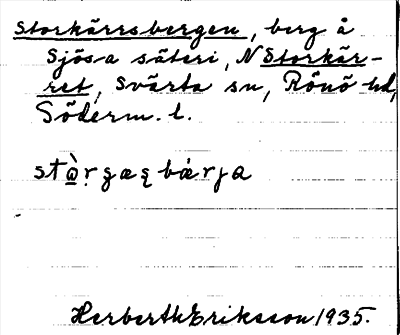 Storkärrsbergen, berg å
Sjösa säteri, N Storkär-
ret, Svärta sn, Rönö hd,
Söderm. l.
Herberth Eriksson 1935.